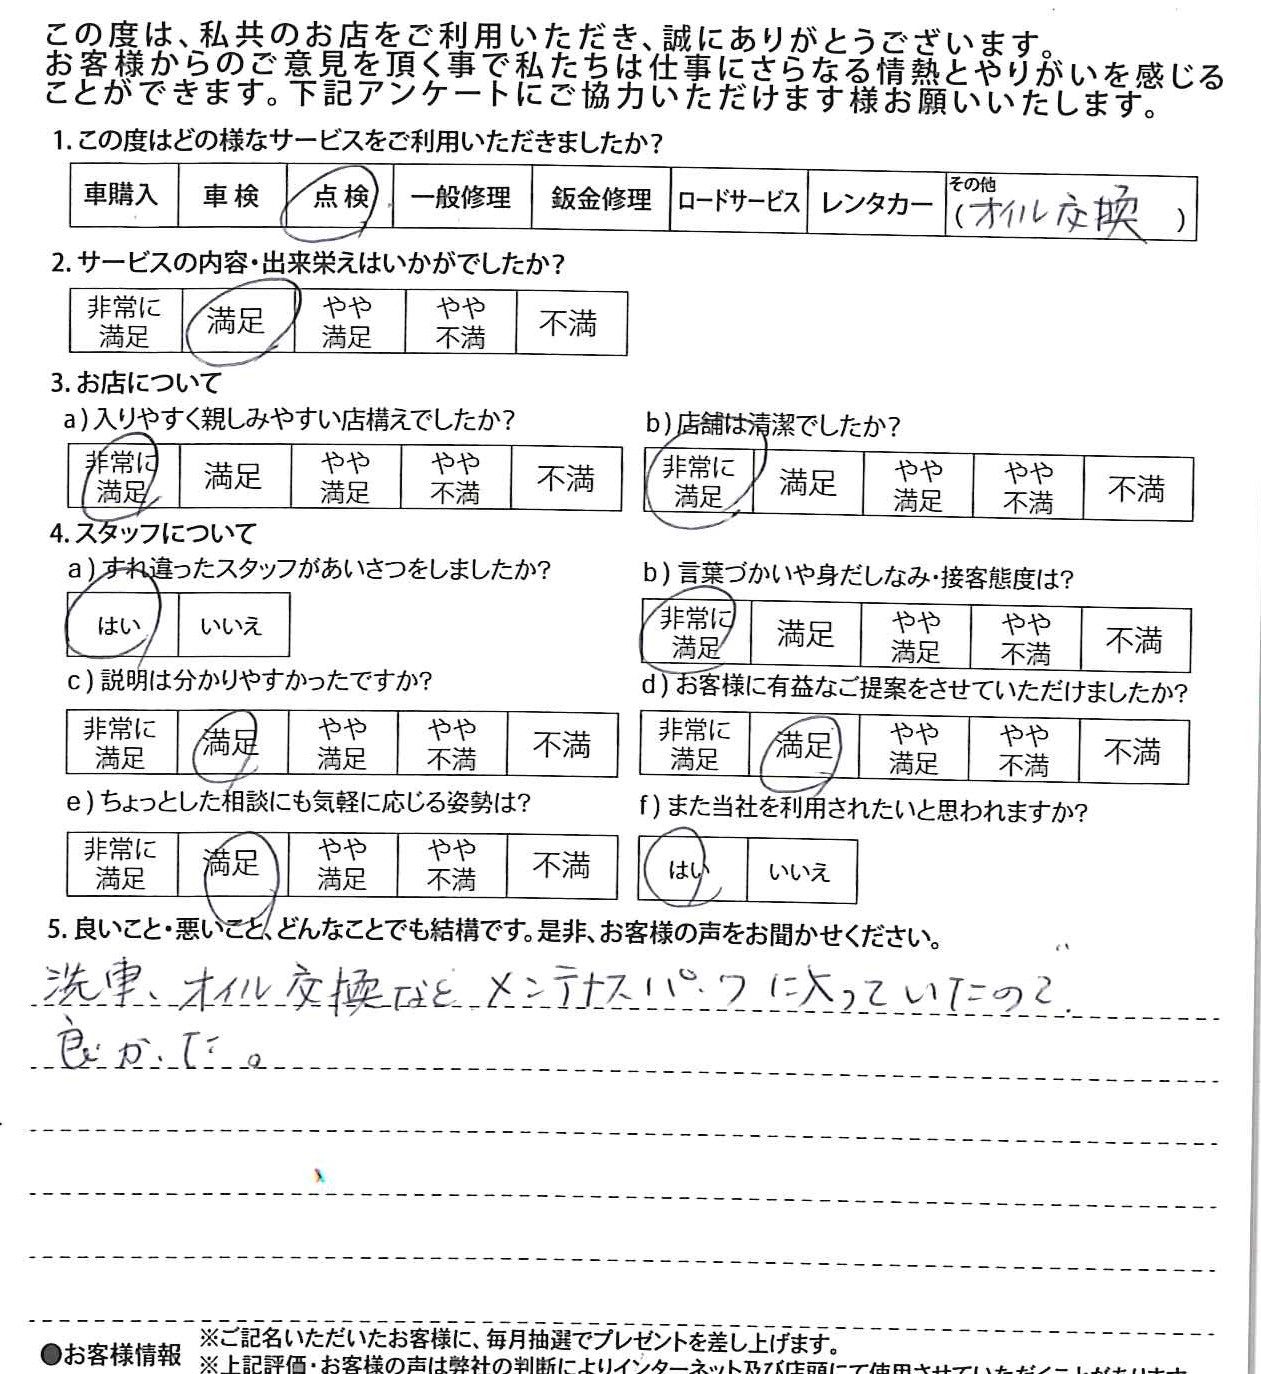 この度は、私共のお店をご利用いただき、誠にありがとうございます。
お客様からのご意見を頂く事で私たちは仕事にさらなる情熱とやりがいを感じる
ことができます。下記アンケートにご協力いただけます様お願いいたします。
1. この度はどの様なサービスをご利用いただきましたか?
車購入 車検 点検 一般修理 鈑金修理 ロードサービス レンタカー その他
(オイル交換)
2. サービスの内容・出来栄えはいかがでしたか?
非常に満足 満足 やや満足 やや不満 不満
3. お店について
a) 入りやすく親しみやすい店構えでしたか?
非常に満足 満足 やや満足 やや不満 不満
b) 店舗は清潔でしたか?
非常に満足 満足 やや満足 やや不満 不満
4. スタッフについて
a) すれ違ったスタッフがあいさつをしましたか?
はい いいえ
b) 言葉づかいや身だしなみ・接客態度は?
非常に満足 満足 やや満足 やや不満 不満
c) 説明は分かりやすかったですか?
非常に満足 満足 やや満足 やや不満 不満
d) お客様に有益なご提案をさせていただけましたか?
非常に満足 満足 やや満足 やや不満 不満
e) ちょっとした相談にも気軽に応じる姿勢は?
非常に満足 満足 やや満足 やや不満 不満
f) また当社を利用されたいと思われますか?
はい いいえ
5. 良いこと・悪いこと、どんなことでも結構です。是非、お客様の声をお聞かせください。
洗車、オイル交換など メンテナスパックに入っていたので
良かった。
●お客様情報 ※ご記名いただいたお客様に、毎月抽選でプレゼントを差し上げます。
※上記評価・お客様の声は弊社の判断によりインターネット及び店頭にて使用させていただくことがあります